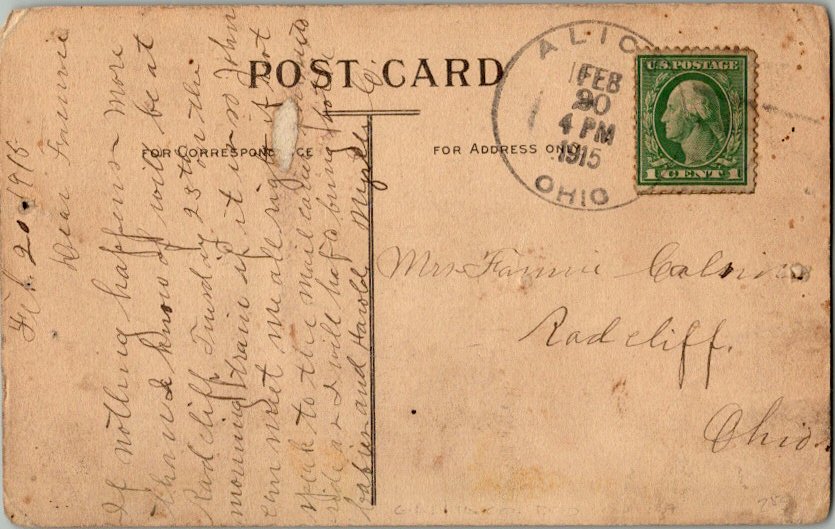 POST CARD
FOR CORRESPONDENCE
FOR ADDRESS ONLY
ALICE
FEB
20
4 PM
1915
OHIO
U.S. POSTAGE
1 CENT 1
Mrs Fannie
Radcliff.
Ohio
Feb. 20 1915
Dear Fannie
If nothing happens more
than I know of will be at
Radcliff Tuesday 23 on the
morning train if it is so John
can meet me all right if not
speak to the mail
and I will have to bring both
babies and Harold Myrtle C